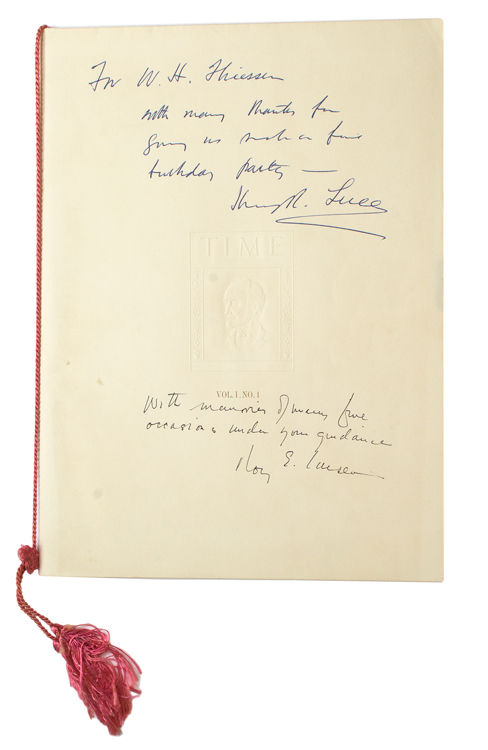 For W. H. Thiessen
with many thanks for
giving us such a fine
birthday party —
Henry R. Luce
TIME
VOL. I, NO. 1
With memories of many fine
occasions under your guidance
Roy E. Larsen